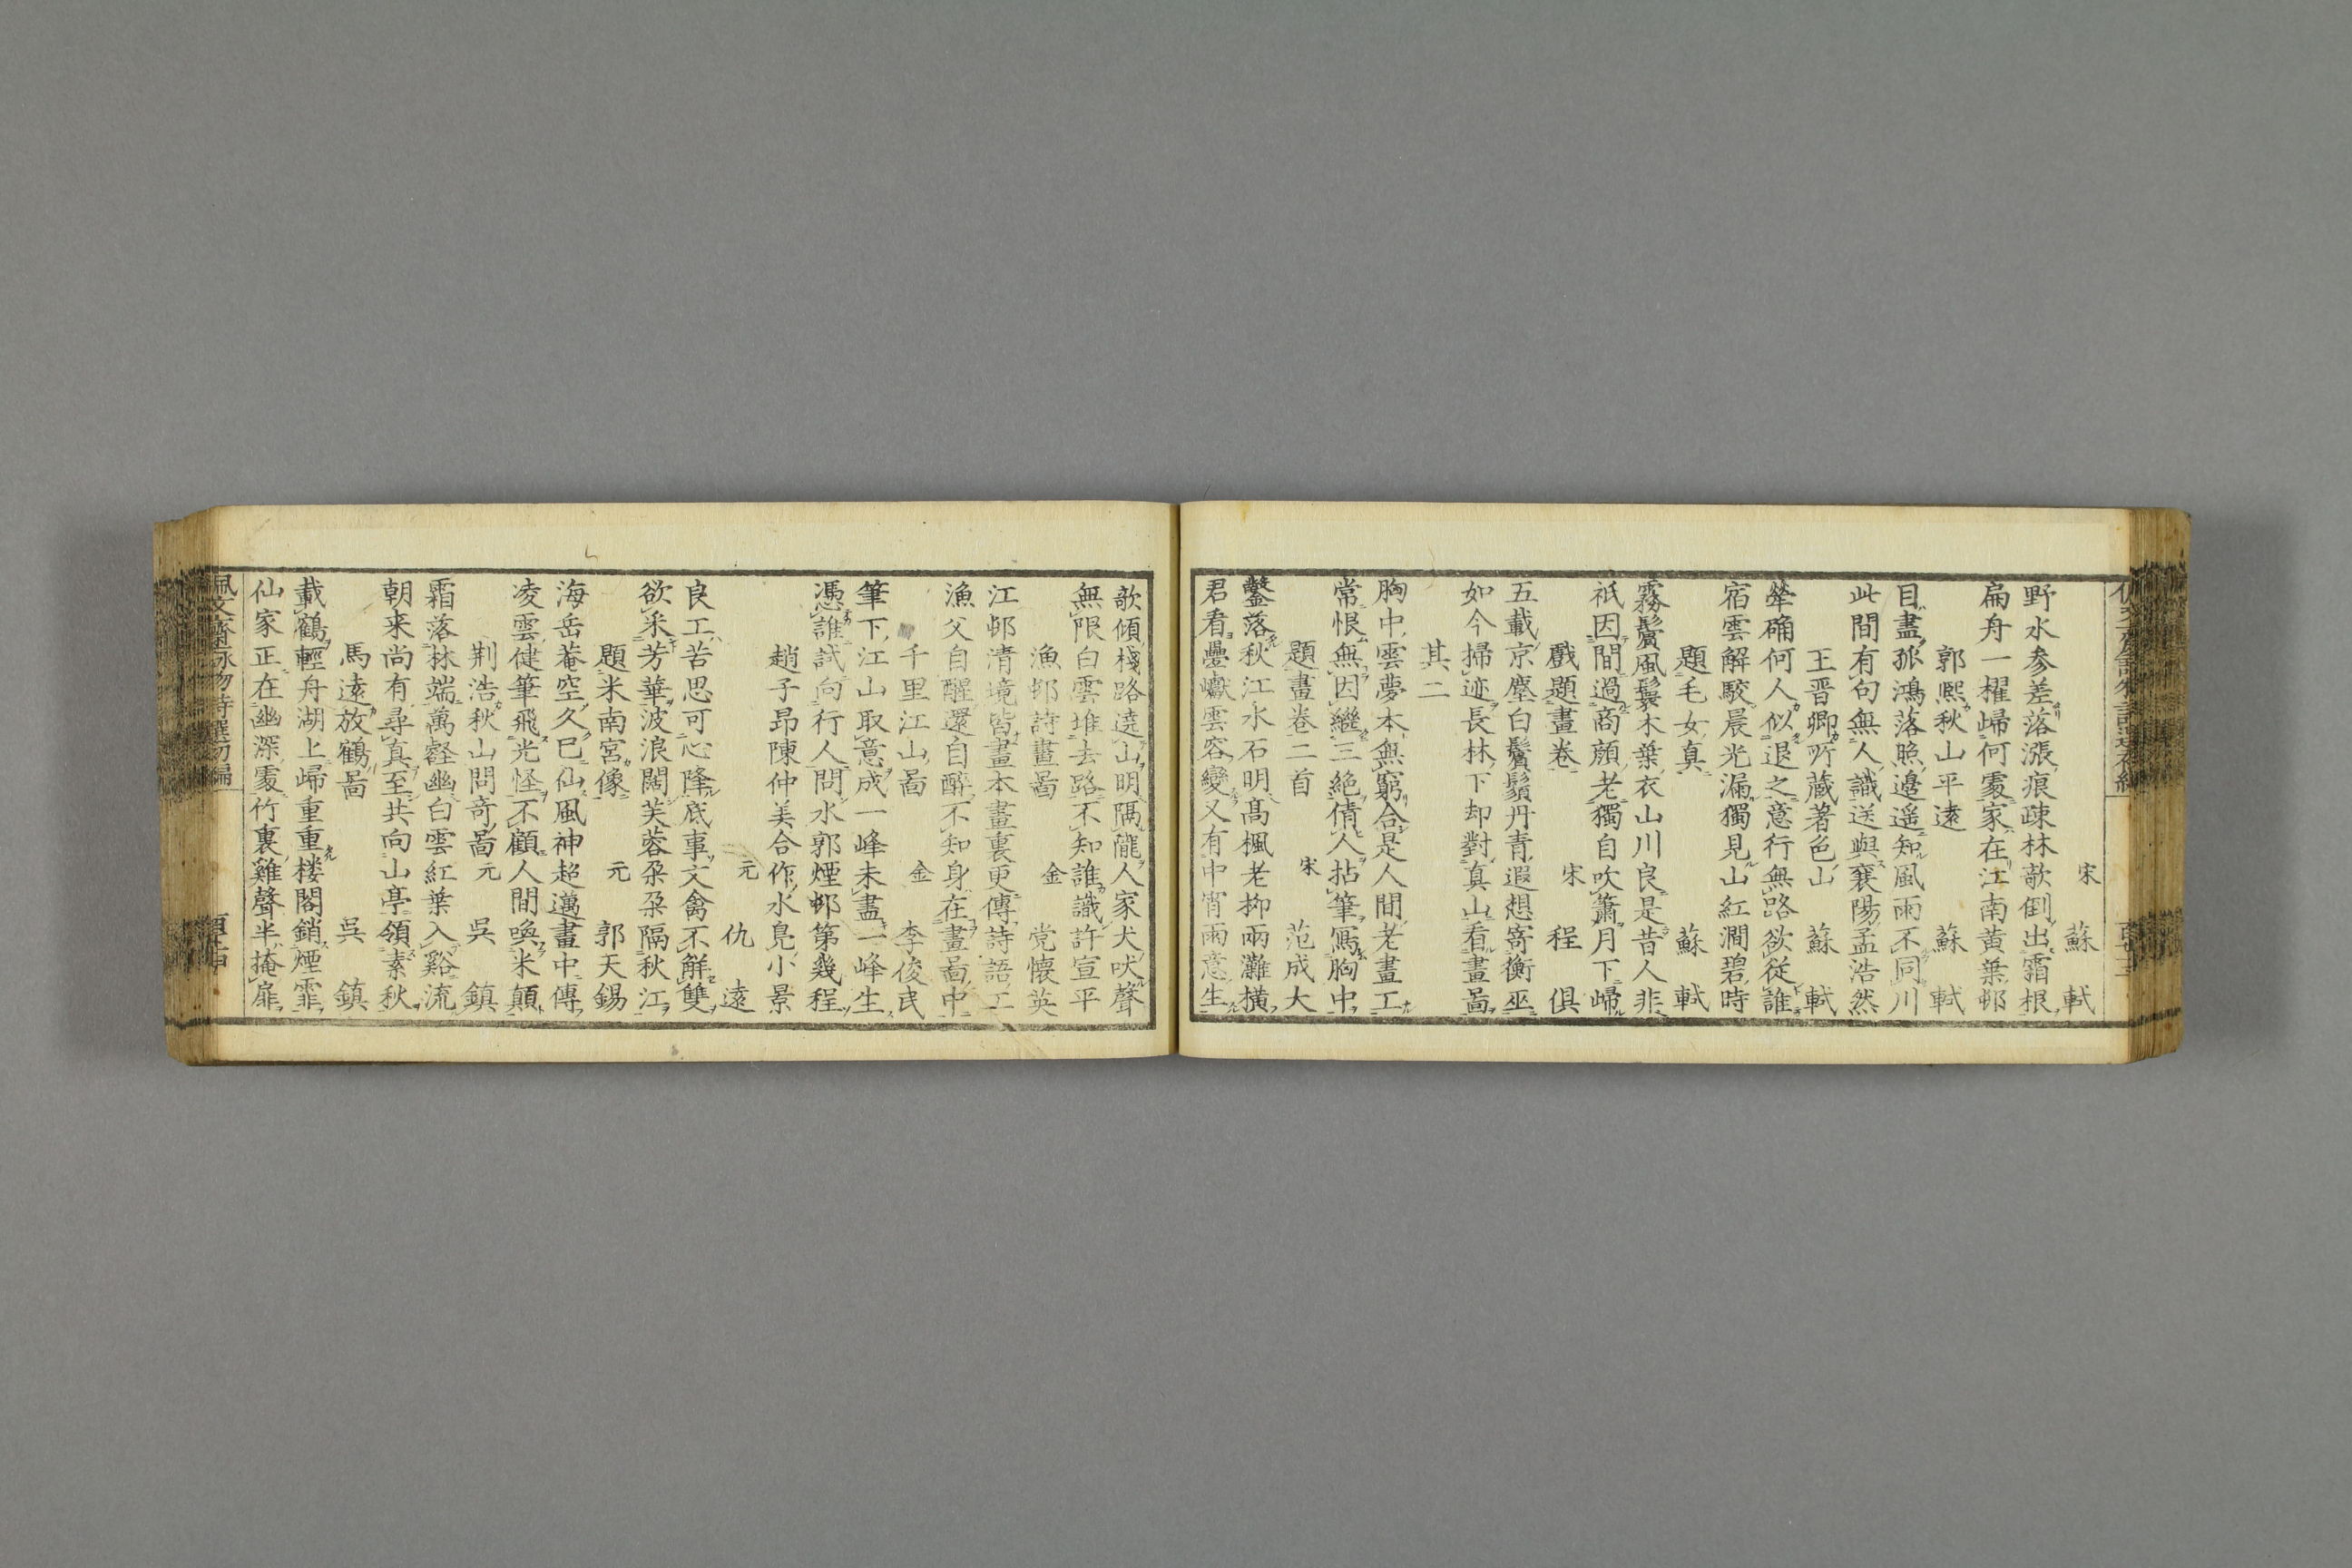 宋 蘇軾
野水参差落漲痕疎林欹倒出霜根
扁舟一櫂歸何處家在江南黄葉邨
郭熈秋山平遠 蘇軾
目盡孤鴻落照邊遥知風雨不同川
此間有句無人識送與襄陽孟浩然
王晋卿所藏著色山 蘇軾
犖确何人似退之意行無路欲從誰
宿雲解駮晨光漏獨見山紅澗碧時
題毛女真 蘇軾
霧鬢風鬟木葉衣山川良是昔人非
祇因間過商顔老獨自吹簫月下歸
戲題畫卷 宋 程俱
五載京塵白鬢鬚丹青遐想寄衡巫
如今掃迹長林下却對真山看畫啚
其二
胸中雲夢本無窮合是人間老畫工
常恨無因繼三絶倩人拈筆寫胸中
題畫卷二首 宋 范成大
鑿落秋江水石明髙楓老柳兩灘横
君看疊巘雲容變又有中宵雨意生
歌傾棧路遶山明隔隴人家犬吠聲
無限白雲堆去路不知誰識許宣平
漁邨詩畫啚 金 党懐英
江邨清境皆畫本畫裏更傳詩語工
漁父自醒還自醉不知身在畫啚中
千里江山啚 金 李俊民
筆下江山取意成一峰未盡一峰生
憑誰試向行人問水郭煙邨第幾程
趙子昂陳仲美合作水凫小景
元 仇遠
良工苦思可心降底事文禽不解雙
欲采芳華波浪闊芙蓉朶朶隔秋江
題米南宮像 元 郭天錫
海岳菴空久已仙風神超邁畫中傳
凌雲健筆飛光怪不顧人間喚米顛
荆浩秋山問竒啚 元 吳鎮
霜落林端萬壑幽白雲紅葉入谿流
朝来尚有尋真至共向山亭領素秋
馬遠放鶴啚 吳鎮
載鶴輕舟湖上歸重重楼閣銷煙霏
仙家正在幽深處竹裏雞聲半掩扉
佩文齋詠物詩選初編